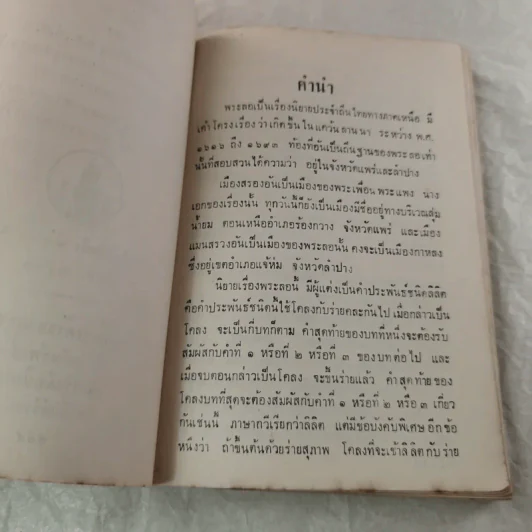 คำนำ
พระลอเป็นเรื่องนิยายประจำถิ่นไทยทางภาคเหนือ มี
เค้าโครงเรื่องว่าเกิดขึ้นในแคว้นลานนา ระหว่าง พ.ศ.
๑๖๑๖ ถึง ๑๖๙๓ ท้องที่อันเป็นถิ่นฐานของพระลอเท่า
นั้นที่สอบสวนได้ความว่า อยู่ในจังหวัดแพร่และลำปาง
เมืองสรองอันเป็นเมืองของพระเพื่อนพระแพง นาง
เอกของเรื่องนั้น ทุกวันนี้ก็ยังเป็นเมืองมีชื่ออยู่ทางบริเวณลุ่ม
น้ำยม ตอนเหนืออำเภอร้องกวาง จังหวัดแพร่ และเมือง
แมนสรวงอันเป็นเมืองของพระลอนั้น คงจะเป็นเมืองกาหลง
ซึ่งอยู่เขตอำเภอแจ้ห่ม จังหวัดลำปาง
นิยายเรื่องพระลอนี้ มีผู้แต่งเป็นคำประพันธ์ชนิดลิลิต
คือคำประพันธ์ชนิดนี้ใช้โคลงกับร่ายคละกันไป เมื่อกล่าวเป็น
โคลง จะเป็นกี่บทก็ตาม คำสุดท้ายของบทที่หนึ่งจะต้องรับ
สัมผัสกับคำที่ ๑ หรือที่ ๒ หรือที่ ๓ ของบทต่อไป และ
เมื่อจบตอนกล่าวเป็นโคลง จะขึ้นร่ายแล้ว คำสุดท้ายของ
โคลงบทที่สุดจะต้องสัมผัสกับคำที่ ๑ หรือที่ ๒ หรือ ๓ เกี่ยว
กันเช่นนี้ ภาษากวีเรียกว่าลิลิต แต่มีข้อบังคับพิเศษอีกข้อ
หนึ่งว่า ถ้าขึ้นต้นด้วยร่ายสุภาพ โคลงที่จะเข้าลิลิตกับร่าย